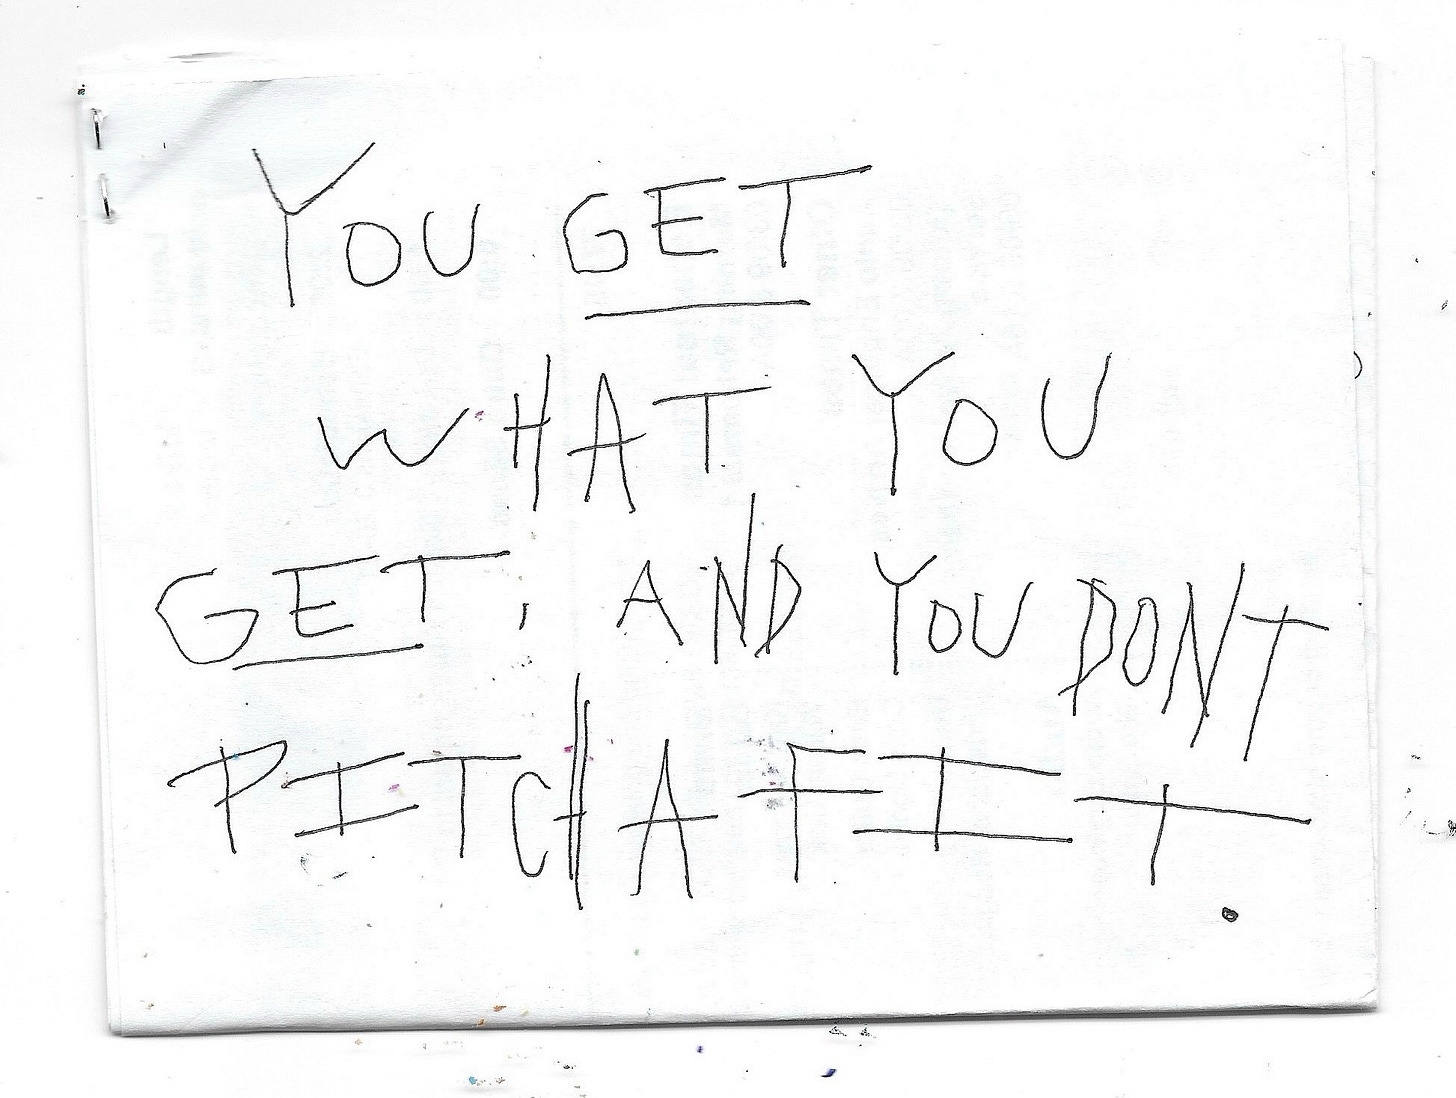 YOU GET
WHAT YOU
GET, AND YOU DONT
PITCH A FIT.